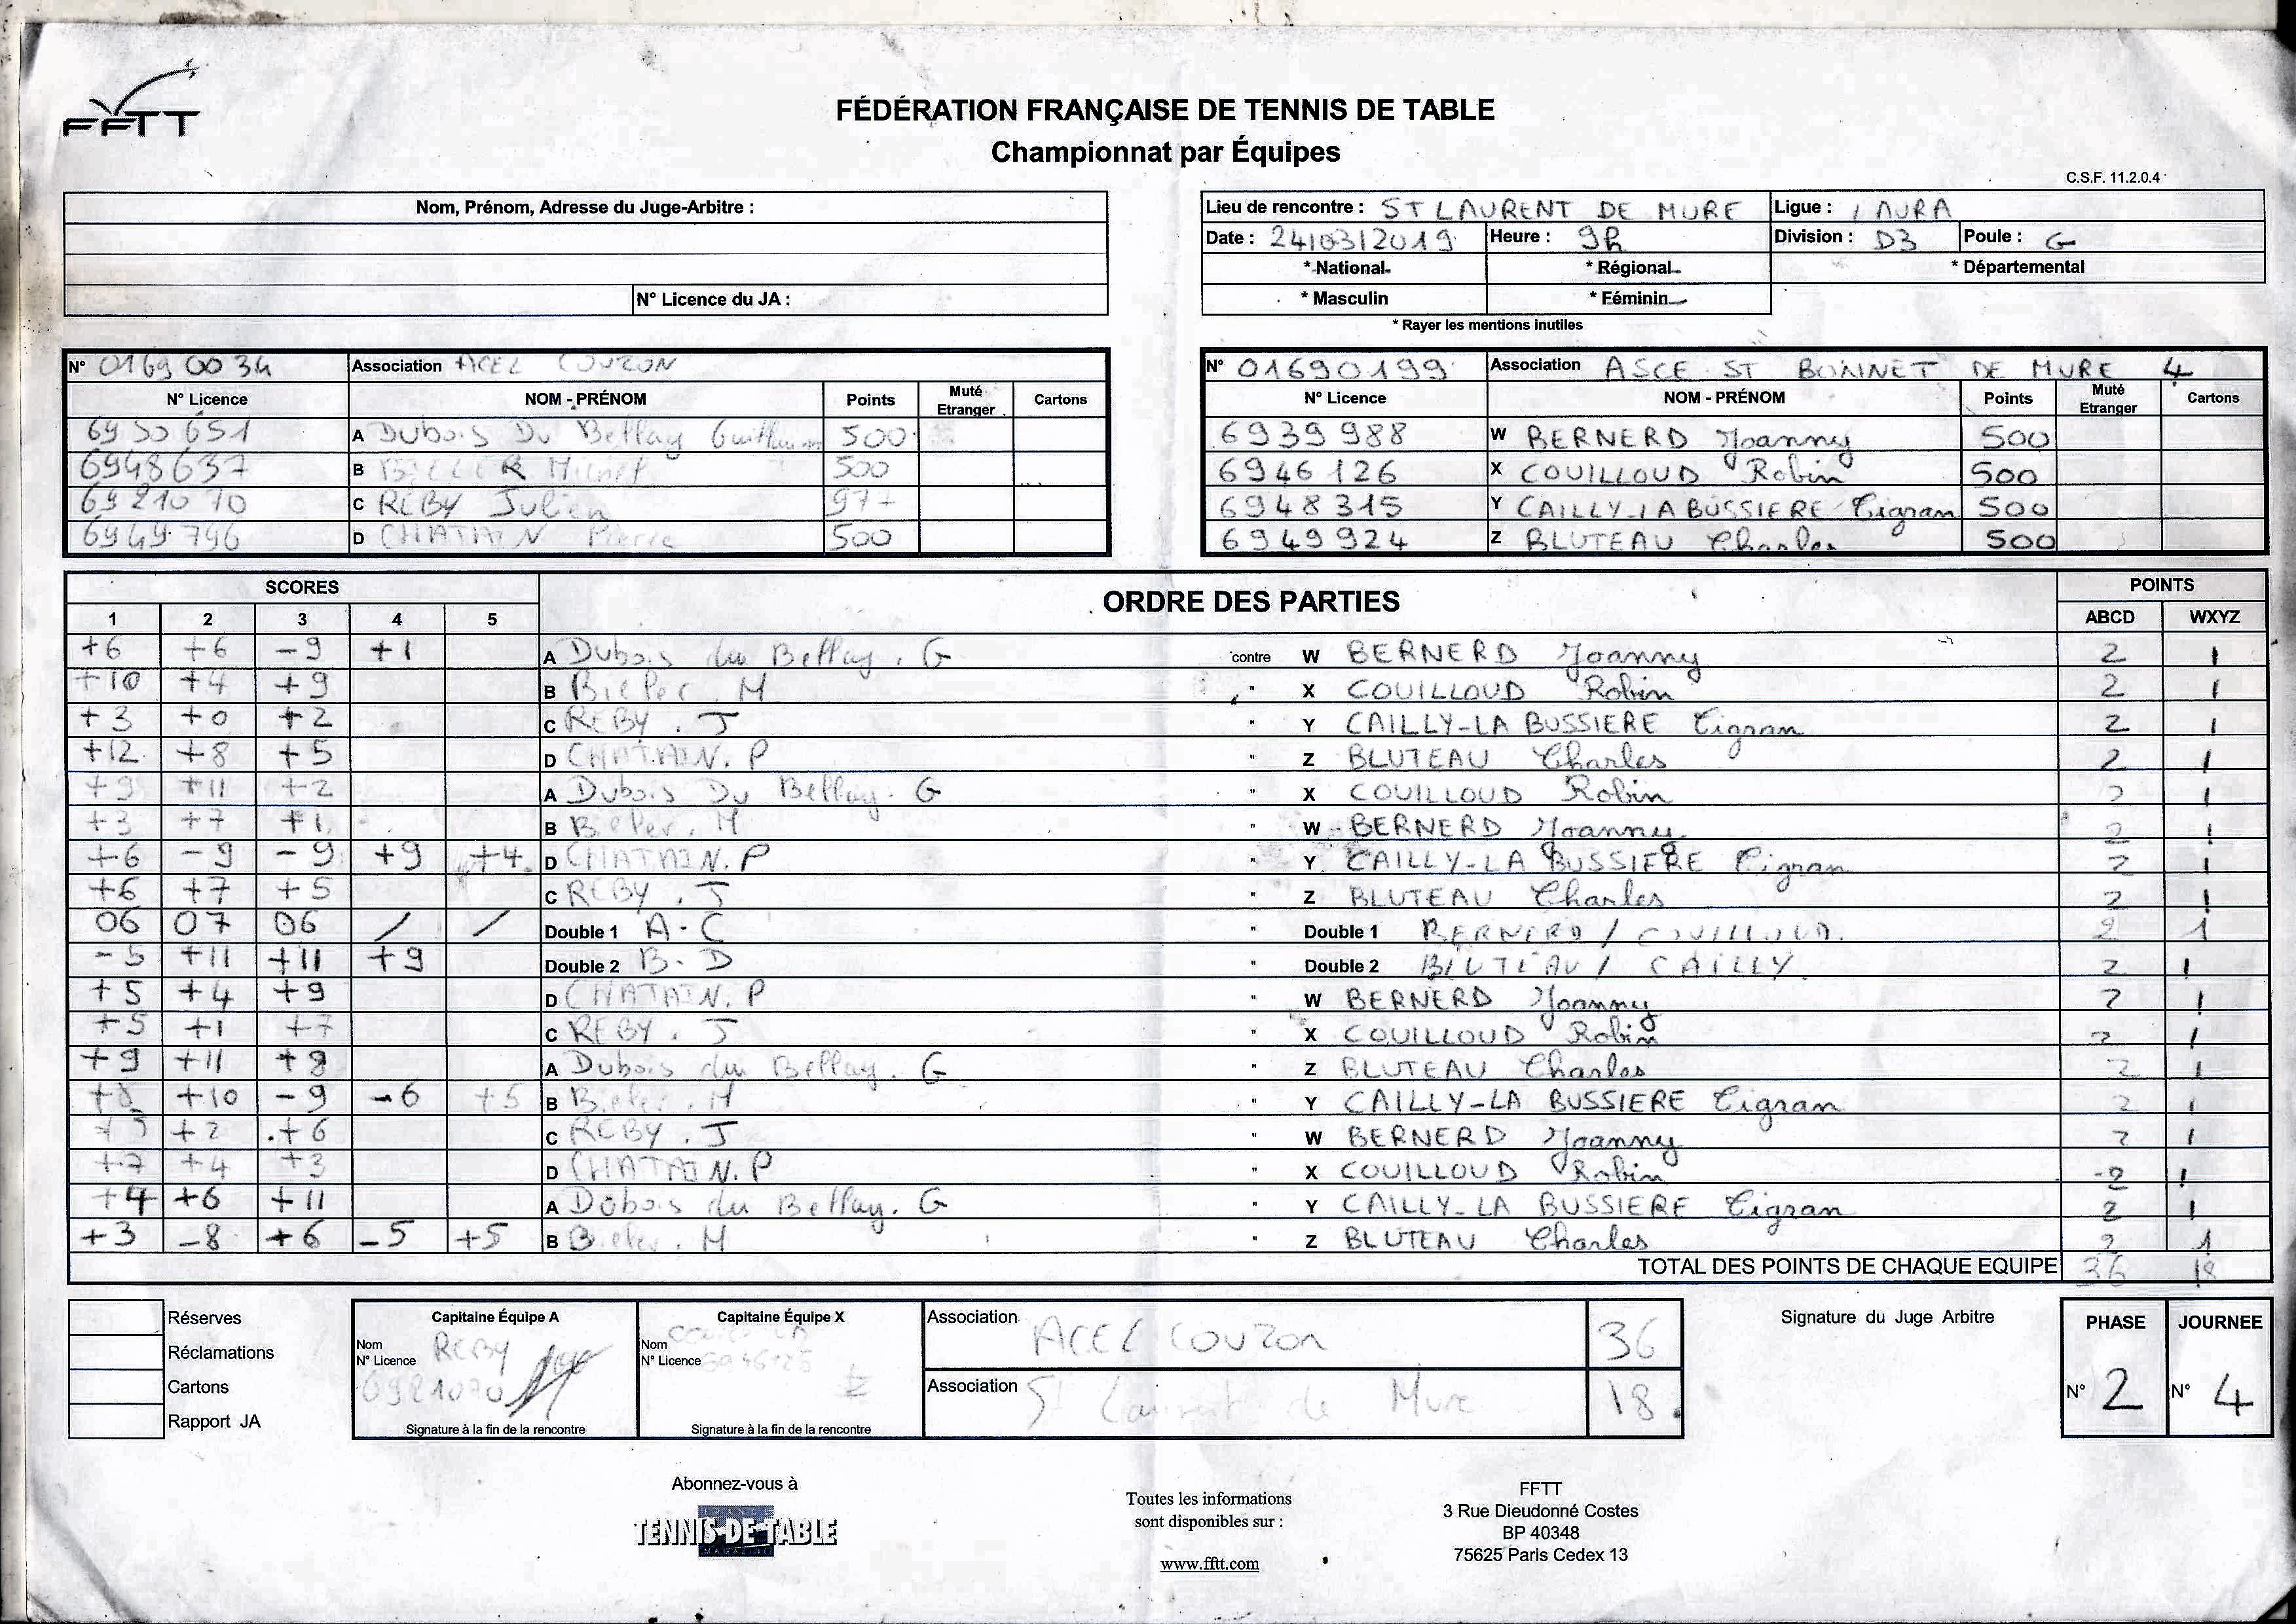 FFTT
FÉDÉRATION FRANÇAISE DE TENNIS DE TABLE
Championnat par Équipes
C.S.F. 11.2.0.4
Nom, Prénom, Adresse du Juge-Arbitre :
N° Licence du JA :
Lieu de rencontre : ST LAURENT DE MURE Ligue : AURA
Date : 24/03/2019 Heure : 9h Division : D3 Poule : G
* National * Régional * Départemental
* Masculin * Féminin
* Rayer les mentions inutiles
N° 01690034 Association ACEL COUZON
N° Licence NOM - PRÉNOM Points Muté Etranger Cartons
6950651 A Dubois Du Bellay Guillaume 500
6948637 B 500
6921070 C REBY Julien 977
6949796 D CHATAIN Pierre 500
N° 01690199 Association ASCE ST BONNET DE MURE 4
N° Licence NOM - PRÉNOM Points Muté Etranger Cartons
6939988 W BERNERD Joanny 500
6946126 X COUILLOUD Robin 500
6948315 Y CAILLY-LA BUSSIERE Tigran 500
6949924 Z BLUTEAU Charles 500
SCORES ORDRE DES PARTIES POINTS
1 2 3 4 5 ABCD WXYZ
+6 +6 -9 +1 A Dubois du Bellay. G contre W BERNERD Joanny 2 1
+10 +4 +9 B Bieler. M " X COUILLOUD Robin 2 1
+3 +0 +2 C REBY. J " Y CAILLY-LA BUSSIERE Tigran 2 1
+12 +8 +5 D CHATAIN. P " Z BLUTEAU Charles 2 1
+9 +11 +2 A Dubois Du Bellay. G " X COUILLOUD Robin 2 1
+3 +7 +1 B Bieler. M " W BERNERD Joanny 2 1
+6 -9 -9 +9 +4 D CHATAIN. P " Y CAILLY-LA BUSSIERE Tigran 2 1
+6 +7 +5 C REBY. J " Z BLUTEAU Charles 2 1
06 07 06 / / Double 1 A-C " Double 1 BERNERD / COUILLOUD. 2 1
-5 +11 +11 +9 Double 2 B-D " Double 2 BLUTEAU / CAILLY. 2 1
+5 +4 +9 D CHATAIN. P " W BERNERD Joanny 2 1
+5 +1 +7 C REBY. J " X COUILLOUD Robin 2 1
+9 +11 +8 A Dubois du Bellay. G " Z BLUTEAU Charles 2 1
+8 +10 -9 -6 +5 B Bieler. M " Y CAILLY-LA BUSSIERE Tigran 2 1
+5 +2 +6 C REBY. J " W BERNERD Joanny 2 1
+7 +4 +3 D CHATAIN. P " X COUILLOUD Robin 2 1
+4 +6 +11 A Dubois du Bellay. G " Y CAILLY-LA BUSSIERE Tigran 2 1
+3 -8 +6 -5 +5 B Bieler. M " Z BLUTEAU Charles 2 1
TOTAL DES POINTS DE CHAQUE EQUIPE 36 18
Réserves
Réclamations
Cartons
Rapport JA
Capitaine Équipe A
Nom REBY
N° Licence 6921070
Signature à la fin de la rencontre
Capitaine Équipe X
Nom
N° Licence
Signature à la fin de la rencontre
Association ACEL COUZON 36
Association St Laurent de Mure 18
Signature du Juge Arbitre
PHASE JOURNEE
N° 2 N° 4
Abonnez-vous à
FRANCE
TENNIS DE TABLE
MAGAZINE
Toutes les informations
sont disponibles sur :
www.fftt.com
FFTT
3 Rue Dieudonné Costes
BP 40348
75625 Paris Cedex 13